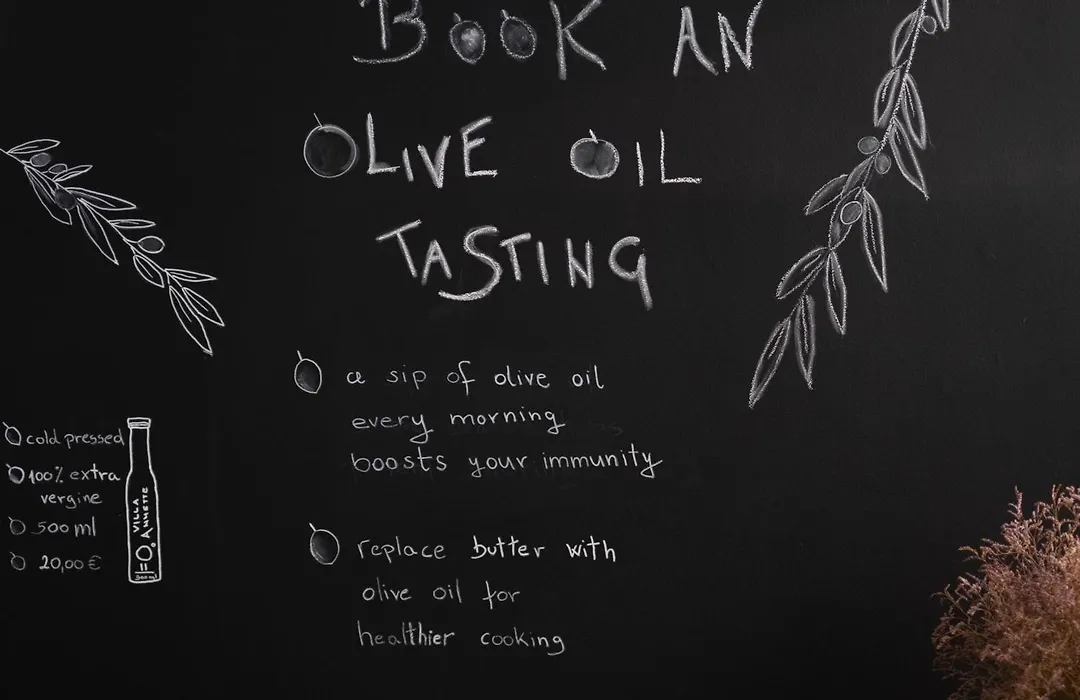 BOOK AN
OLIVE OIL
TASTING
a sip of olive oil
every morning
boosts your immunity
replace butter with
olive oil for
healthier cooking
cold pressed
100% extra
vergine
500 ml
20,00 €
VILLA
ANNETTE